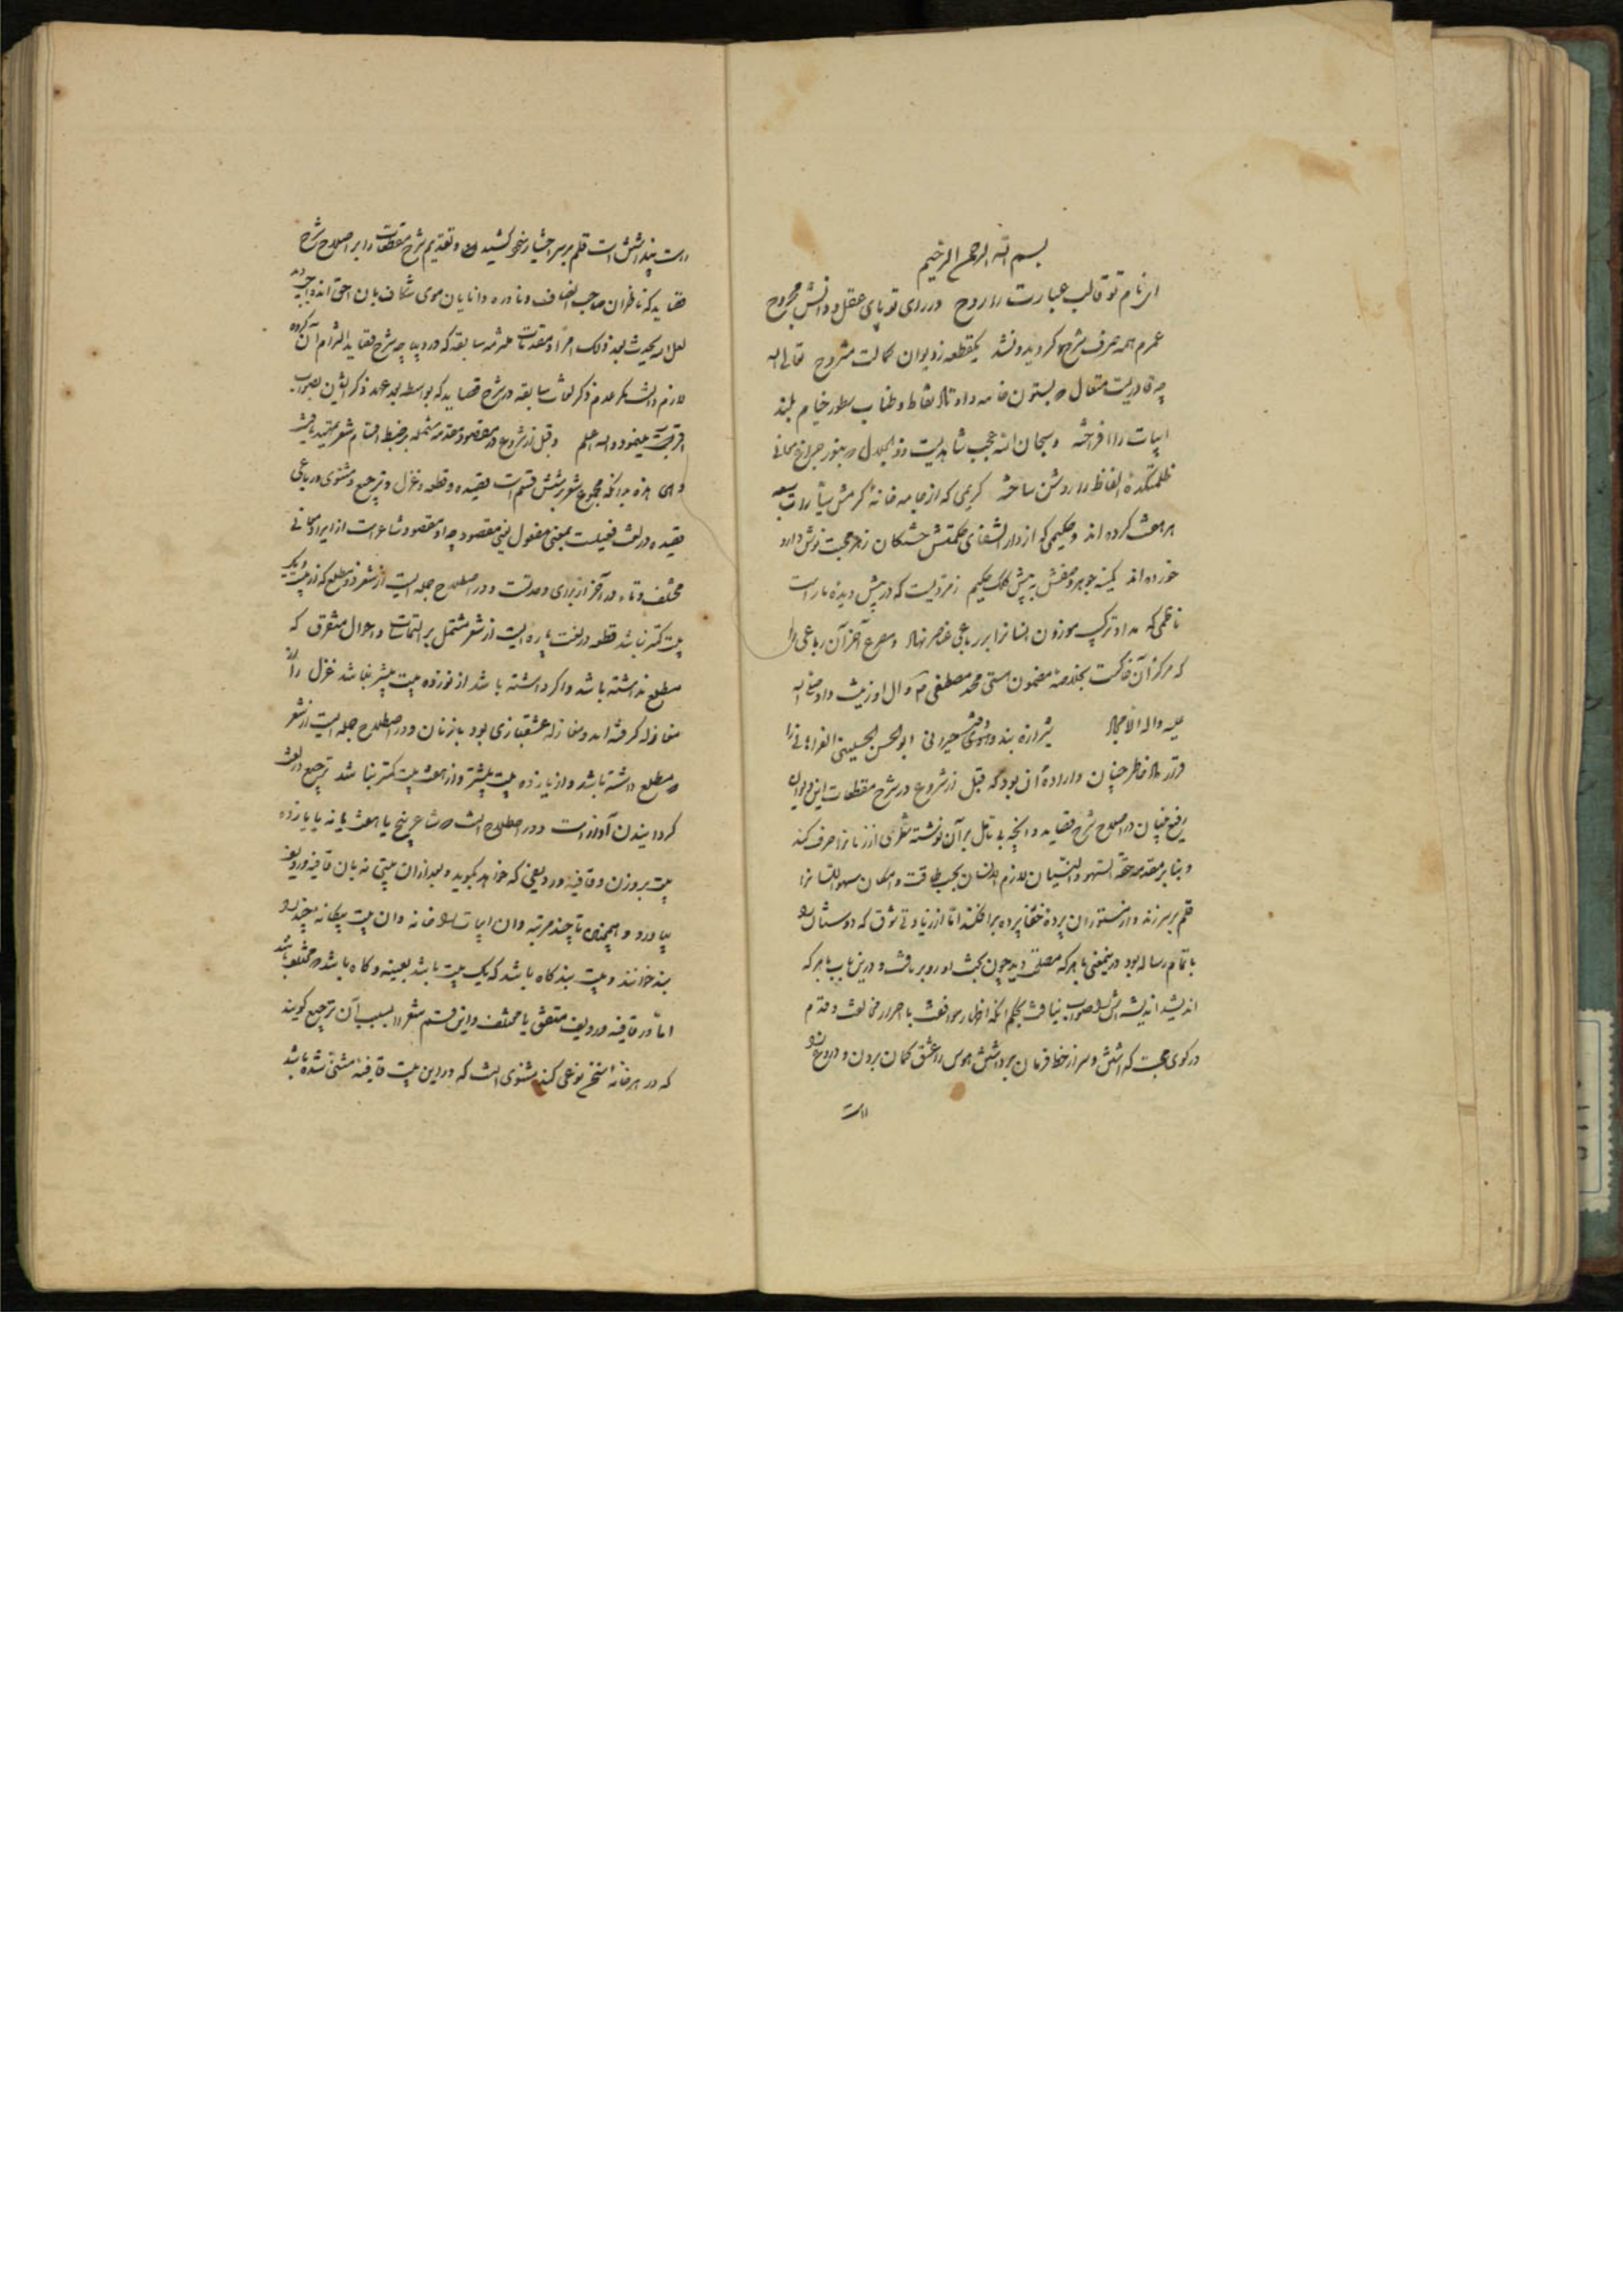 بسم الله الرحمن الرحیم
ای نام تو قالب عبارت را روح در رای تو پای عقل و دانش مجروح
عمرم همه صرف شرح کردید و نشد یکقطعه ز دیوان کمالت مشروح تعالی الله
چه قادریست متعال که بستون خامه و اوتاد نقاط و طناب سطور خیام بلند
ابیات را افراخته و سبحان الله عجب شاهدیست ذو الجلال که بنور چراغ معانی
ظلمتکدهٔ الفاظ را روشن ساخته کریمی که از جامه خانهٔ کرمش
کرده اند و حکیمی که از دار الشفای حکمتش خستکان زهر محبت نوش دارو
خورده اند کمینه جوهر وصفش به پیش کلک حکیم زمردیست که در پیش دیده مار است
ناظمی که مدار ترکیب موزون انسانرا بر رباعی عناصر نهاد و مصرع آخر آن رباعی را
که مرکز آن خاکست بخلاصهٔ مضمون مسمی محمد مصطفی و آل او زینت داد صلی الله
علیه و اله الامجاد شیرازه بند حیرانی ابو الحسن الحسینی الفراهانی را
قرار داد خاطر چنان و اراده آن بود که قبل از شروع در شرح مقطعات این دیوان
رفیع بنیان در اصلاح شرح قصاید و آنچه بی تامل بر آن نوشته نظری از زمانرا صرف کند
و بنا بر مقدمه حقه السهو و النسیان لازم الانسان بحسب طاقت و امکان سهو اللسانرا
قلم بر سر زند و از مستوران پرده خفا پرده برافکند اما از زیادتی شوق که دوستان را
باتمام رساله بود درینمعنی با هر که مصلحت دید چون بخت او رو بر تافت و درین باب با هر که
اندیشید اندیشه اش را صواب نیافت بحکم آنکه اظهار موافقت با احرار مخالفت و قدم
در کوی محبت که اشتن و سر از خط فرمان برداشتن هوس را عشق کمان بردن و دروغ را
راست
راست پنداشتن است قلم بر سر اختیار خود کشیده و تقدیم شرح مقطعات را بر اصلاح شرح
قصاید که ناظران صاحب انصاف و نادره دانایان موی شکاف بان احق اند واجب دید
لعل الله یحدث بعد ذلک امرا و مقدمات سابقه که در دیباچه شرح قصاید التزام آن کرده
لازم دانست مکر عدم ذکر لغات سابقه در شرح قصاید که بواسطه بعد عهد ذکر ایشان بصواب
اقرب مینمود و الله اعلم و قبل از شروع در مقصود مقدمه مشتمله بر ضبط اقسام شعر تمهید یافت
و هی هذه بدانکه مجموع شعر بر شش قسم است قصیده و قطعه و غزل و ترجیع و مثنوی و رباعی
قصیده در لغت فعیلست بمعنی مفعول یعنی مقصود چه او مقصود شاعر است از ایراد معانی
مختلف و تاء در آخر از برای وحدتست و در اصطلاح جمله ایست از شعر ذو مطلع که از بیست و یک
بیت کمتر نباشد قطعه در لغت پاره ایست از شعر مشتمل بر التماسات و احوال متفرق که
مطلع نداشته باشد و اکر داشته باشد از نوزده بیت بیشتر نباشد غزل را از
مغازله کرفته اند و مغازله عشقبازی بود با زنان و در اصطلاح جمله ایست از شعر
که مطلع داشته باشد و از یازده بیت بیشتر و از هفت بیت کمتر نباشد ترجیع در لغت
کردانیدن آواز است و در اصطلاح انست که شاعر پنج یا هفت یا نه یا یازده
بیت بر وزن و قافیه و ردیفی که خواهد بکوید و بعد از ان بیتی نه بان قافیه و ردیف
بیاورد و همچنین تا چند مرتبه و ان ابیات را خانه و ان بیت بیکانه را
بند خوانند و بیت بند کاه باشد که یک بیت باشد بعینه و کاه باشد که مختلف باشد
اما در قافیه و ردیف متفق یا مختلف و این قسم شعر را بسبب آن ترجیع کویند
که در هر خانه نوعی کند مثنوی انست که در این بیت قافیه مثنی شده باشد